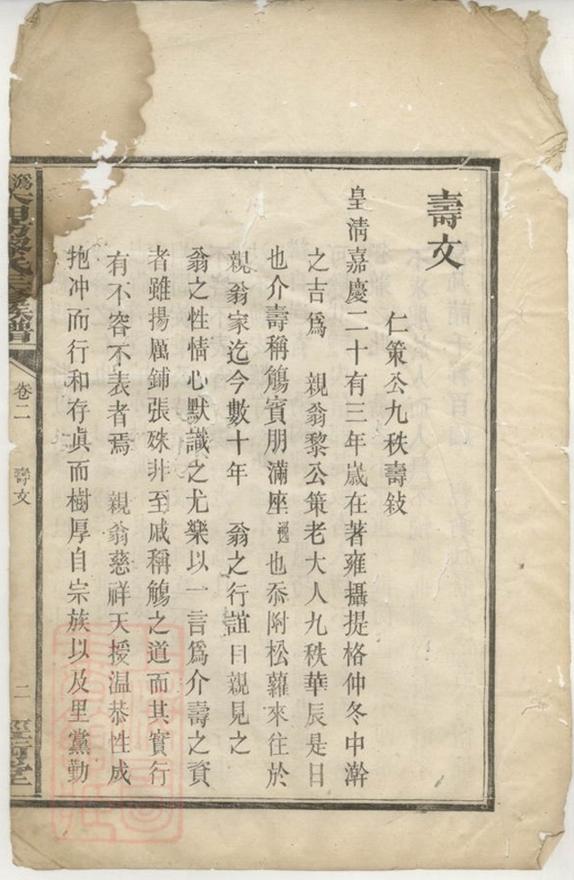 壽文
仁策公九秩壽敍
皇清嘉慶二十有三年歲在著雍攝提格仲冬中澣
之吉爲 親翁黎公策老大人九秩華辰是日
也介壽稱觴賓朋滿座 也忝附松蘿來往於
親翁家迄今數十年 翁之行誼目親見之
翁之性情心默識之尤樂以一言爲介壽之資
者雖揚厲鋪張殊非至戚稱觴之道而其實行
有不容不表者焉 親翁慈祥天授温恭性成
抱冲而行和存眞而樹厚自宗族以及里黨勤
族譜
卷二
壽文
二
堂